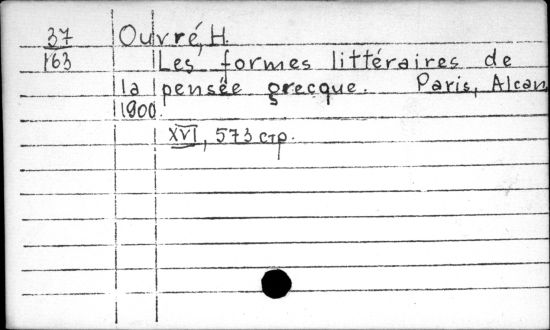 37 Ouvré, H.
163 Les formes littéraires de
la pensée grecque. Paris, Alcan,
1900.
XVI, 573 стр.